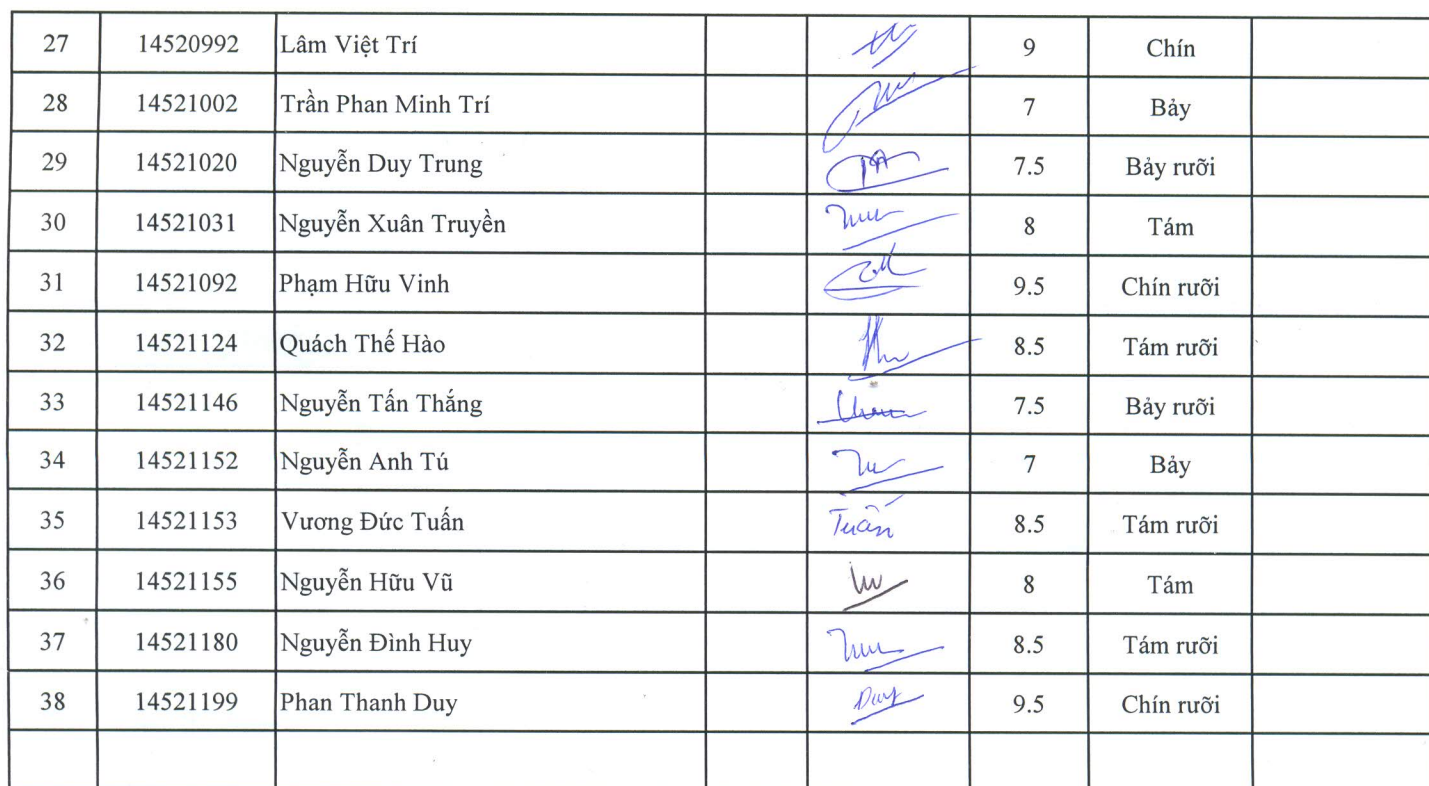 27 14520992 Lâm Việt Trí 9 Chín
28 14521002 Trần Phan Minh Trí 7 Bảy
29 14521020 Nguyễn Duy Trung 7.5 Bảy rưỡi
30 14521031 Nguyễn Xuân Truyền 8 Tám
31 14521092 Phạm Hữu Vinh 9.5 Chín rưỡi
32 14521124 Quách Thế Hào 8.5 Tám rưỡi
33 14521146 Nguyễn Tấn Thắng 7.5 Bảy rưỡi
34 14521152 Nguyễn Anh Tú 7 Bảy
35 14521153 Vương Đức Tuấn Tuấn 8.5 Tám rưỡi
36 14521155 Nguyễn Hữu Vũ 8 Tám
37 14521180 Nguyễn Đình Huy 8.5 Tám rưỡi
38 14521199 Phan Thanh Duy Duy 9.5 Chín rưỡi